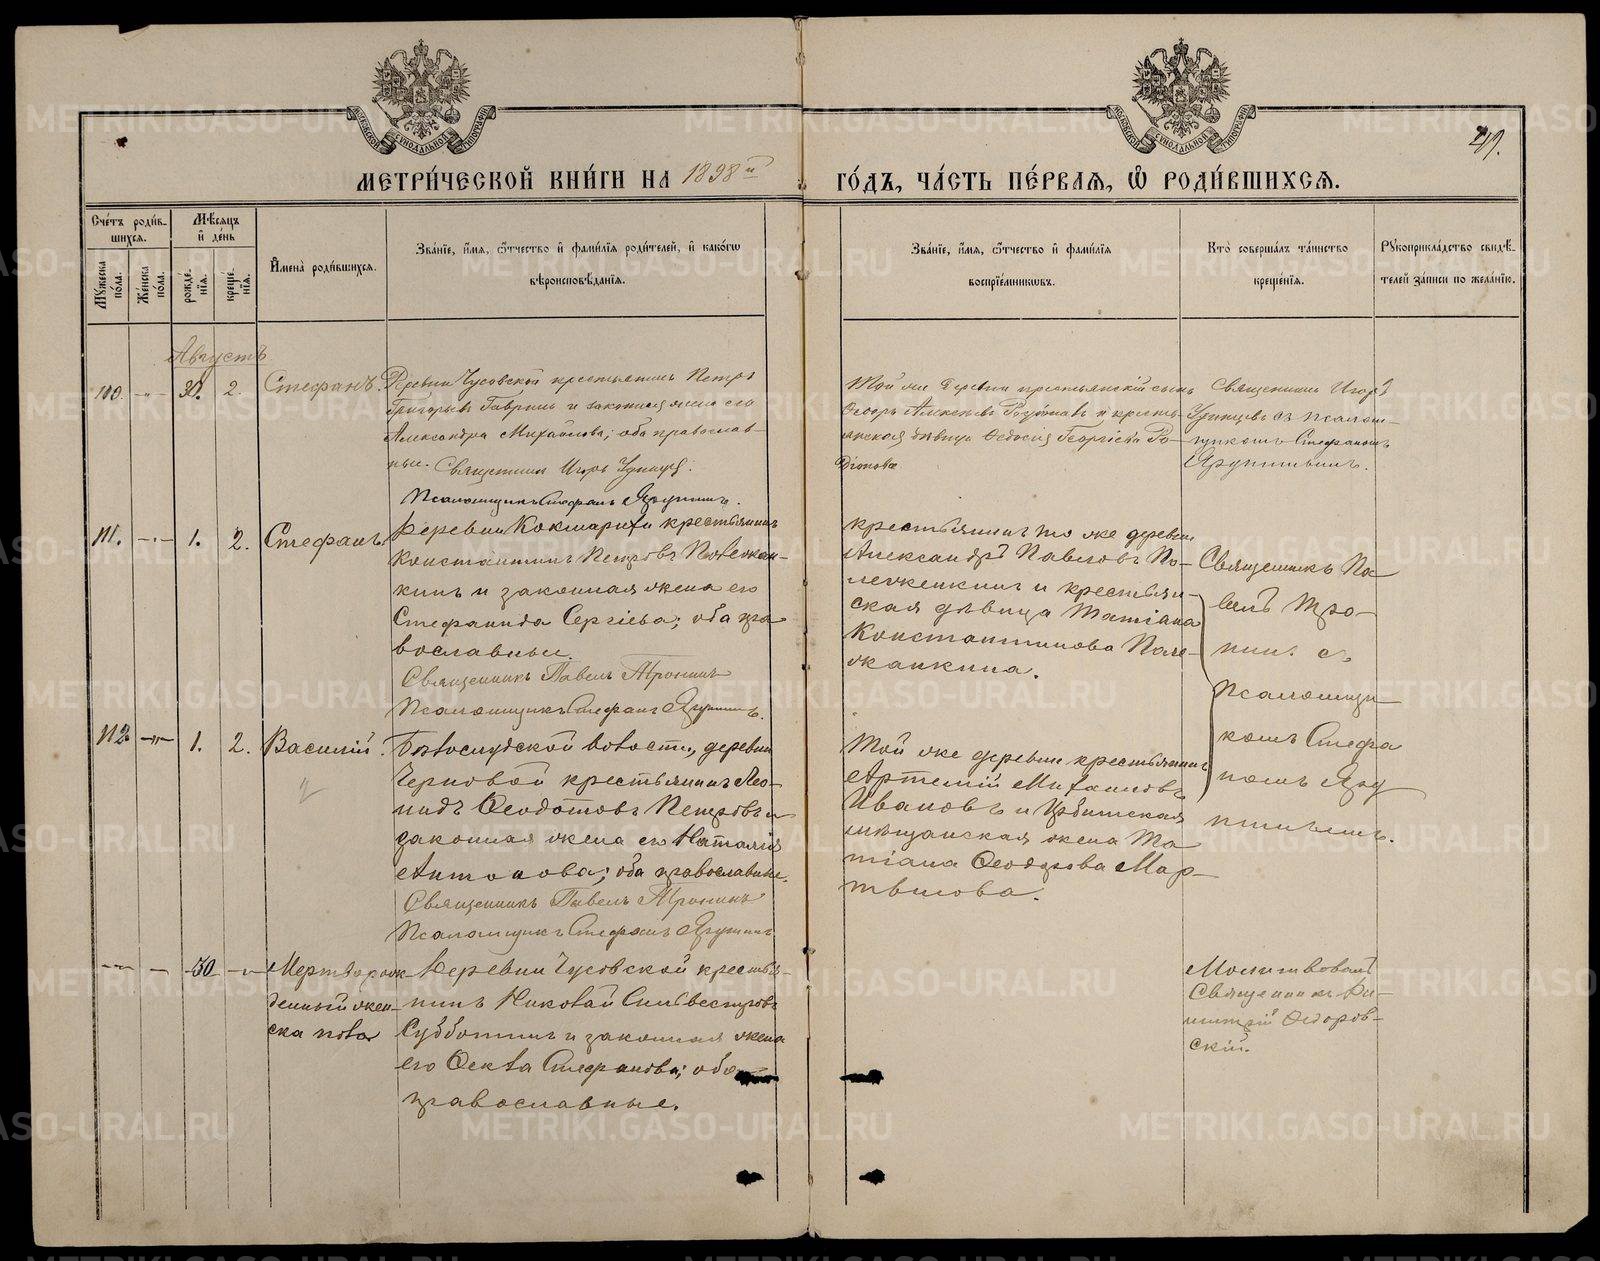 МЕТРИ́ЧЕСКОЙ КНИ́ГИ НА 1898й
ГО́ДЪ, ЧА́СТЬ ПЕ́РВАѦ, Ѡ҆ РОДИ́ВШИХСѦ.
Сче́тъ роди́в-
шихсѧ.
Му́жеска по́ла.
Же́нска по́ла.
Мѣ́сѧцъ
и҆ де́нь
рожде́-
нїѧ.
креще́-
нїѧ.
И҆мена̀ роди́вшихсѧ.
Зва́нїе, и҆́мѧ, ѻ҆́тчество и҆ фами́лїѧ роди́телей, и҆ како́гѡ
вѣроисповѣ́данїѧ.
Зва́нїе, и҆́мѧ, ѻ҆́тчество и҆ фами́лїѧ
воспрїе́мникѡвъ.
Кто̀ соверша́лъ та́инство
креще́нїѧ.
Рꙋкоприкла́дство свидѣ́-
телей за́писи по жела́нїю.
Августъ
110. 2. Стефанъ.
Деревни Чусовской крестьянинъ Петръ
Григорьевъ Гавринъ и законная жена его
Александра Михайлова; оба православ-
ные. Священникъ Игорь
Псаломщикъ Стефанъ
Той же деревни крестьянскій сынъ
Ѳеодоръ Алексѣевъ и кресть-
янская дѣвица Ѳедосія Георгіева Ро-
діонова
Священникъ Игорь
съ псалом-
щикомъ Стефаномъ
111. 1. 2. Стефанъ.
Деревни крестьянинъ
Константинъ Петровъ
кинъ и законная жена его
Стефанида Сергіева; оба пра
вославные.
Священникъ Павелъ Тронинъ
Псаломщикъ Стефанъ
крестьянинъ то же деревни
Александръ Павловъ По-
и крестьян-
ская дѣвица Татіана
Константинова Поле-
жанкина.
Священникъ Па
велъ Тро-
нин. съ
псаломщи
комъ Стефа
номъ
112. 1. 2. Василій.
волости, деревни
Черновой крестьянинъ Лео-
нидъ Ѳеодотовъ Петровъ и
законная жена его Наталія
Антонова; оба православные.
Священникъ Павелъ Тронинъ
Псаломщикъ Стефанъ
Той же деревни крестьянинъ
Артемій Михайловъ
Ивановъ и Ирбитская
мѣщанская жена Та
тіана Ѳеодорова Мар-
тьянова.
30 Мертворож-
денный жен-
ска пола
Деревни Чусовской крестья-
нинъ Николай Сильвестровъ
Субботинъ и законная жена
его Ѳекла Стефанова; оба
православные.
Молитвовалъ
Священникъ Ди-
митрій Ѳедоров-
скій.
METRIKI.GASO-URAL.RU